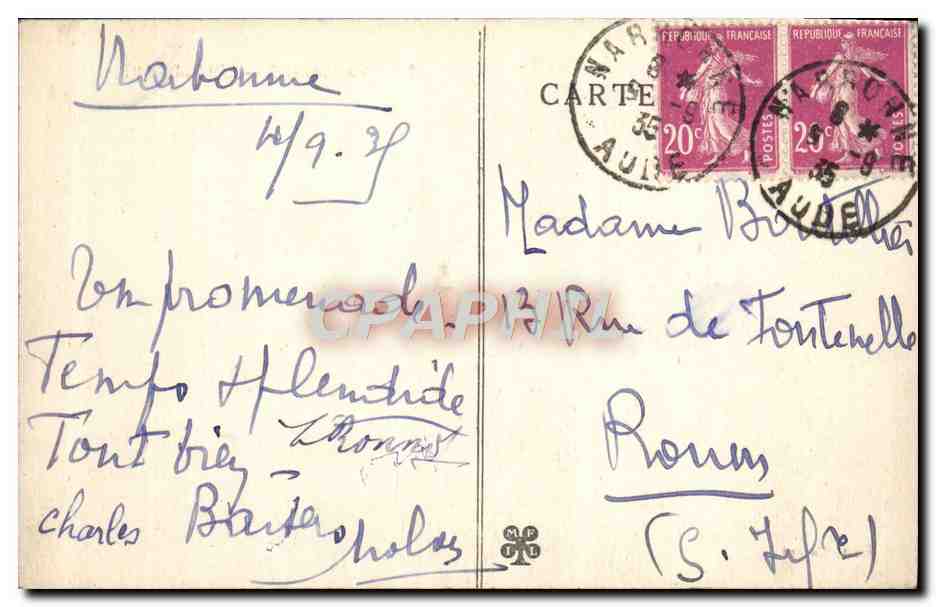 Narbonne
4/9.35
En promenade.
Temps splendide
Tout bien
Charles Baisers
CARTE
NARBONNE
8 *
5 -9
35
AUDE
REPUBLIQUE FRANÇAISE
20c POSTES
REPUBLIQUE FRANÇAISE
20c POSTES
NARBONNE
8 *
5 -9
35
AUDE
Madame
13 Rue de Fontenelle
Rouen
(S. Infre)
CPAPHIL